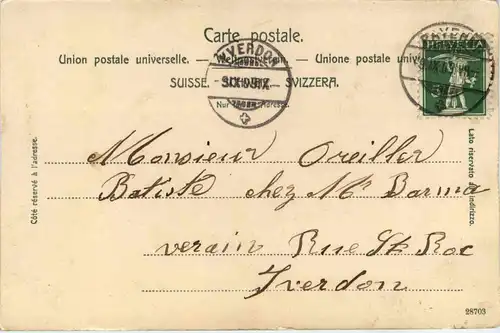 Carte postale.
Union postale universelle. — Weltpostverein. — Unione postale universale.
SUISSE. SVIZZERA.
Nur für die Adresse.
YVERDON
9.IX.09.IX
HELVETIA
Côté réservé à l'adresse.
Lato riservato all'indirizzo.
Monsieur Oreiller
Batiste chez Mr Barma
verain Rue St Roc
Yverdon
28703